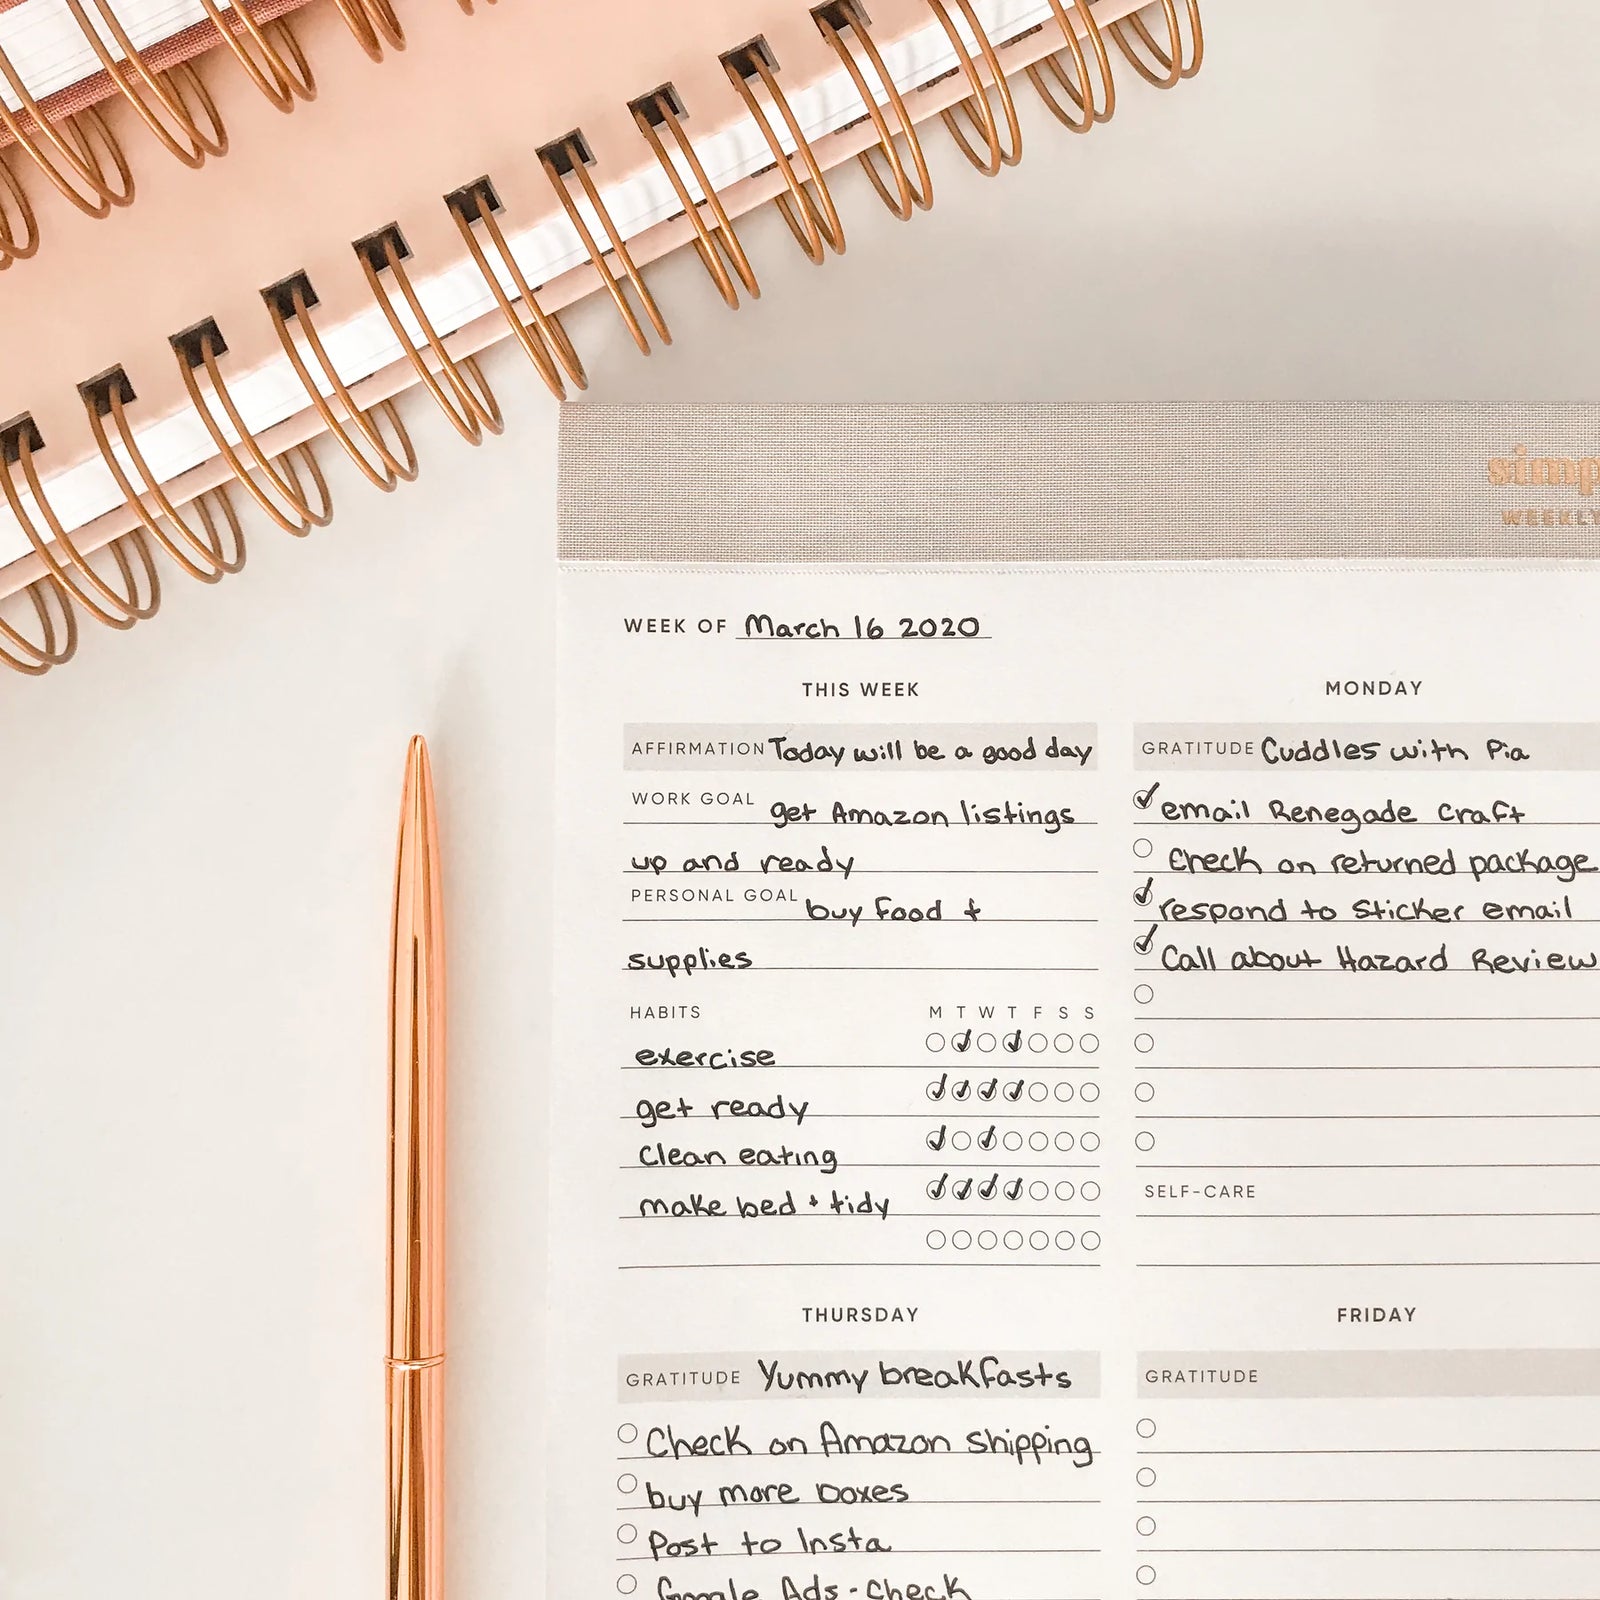 simp
WEEKLY
WEEK OF March 16 2020
THIS WEEK
AFFIRMATION Today will be a good day
WORK GOAL get Amazon listings
up and ready
PERSONAL GOAL buy food +
supplies
HABITS M T W T F S S
exercise
get ready
clean eating
make bed + tidy
MONDAY
GRATITUDE Cuddles with Pia
email Renegade Craft
Check on returned package
respond to Sticker email
Call about Hazard Review
SELF-CARE
THURSDAY
GRATITUDE Yummy breakfasts
Check on Amazon shipping
buy more boxes
Post to Insta
Google Ads - check
FRIDAY
GRATITUDE